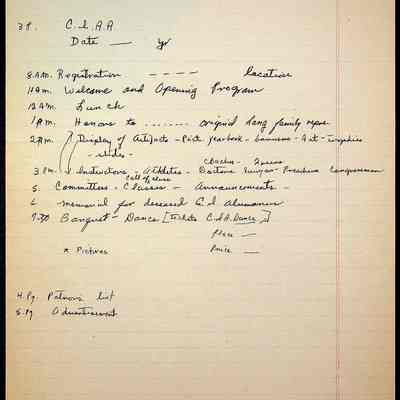 3 P. C. I. A. A
Date — yr
8 A.M. Registration - - - - location
11 A.m. Welcome and Opening Program
12 A.M. Lunch
1 P.M. Honors to ........ original long family
2 P.m. Display of Artifacts - Past yearbook - banners - Art - trophies
- slides -
Coaches - Queens
3 P.m. Instructors - Athletes - Doctors lawyers - Preachers Congressmen
Call of classes
5. Committees - Classes - Announcements -
6 memorial for deceased C.I Alumanus
7:30 Banquet - Dance [Tickets C.I.A. Dance]
Place —
* Pictures Price —
4. Pg. Patrons list
5. Pg Advertisement